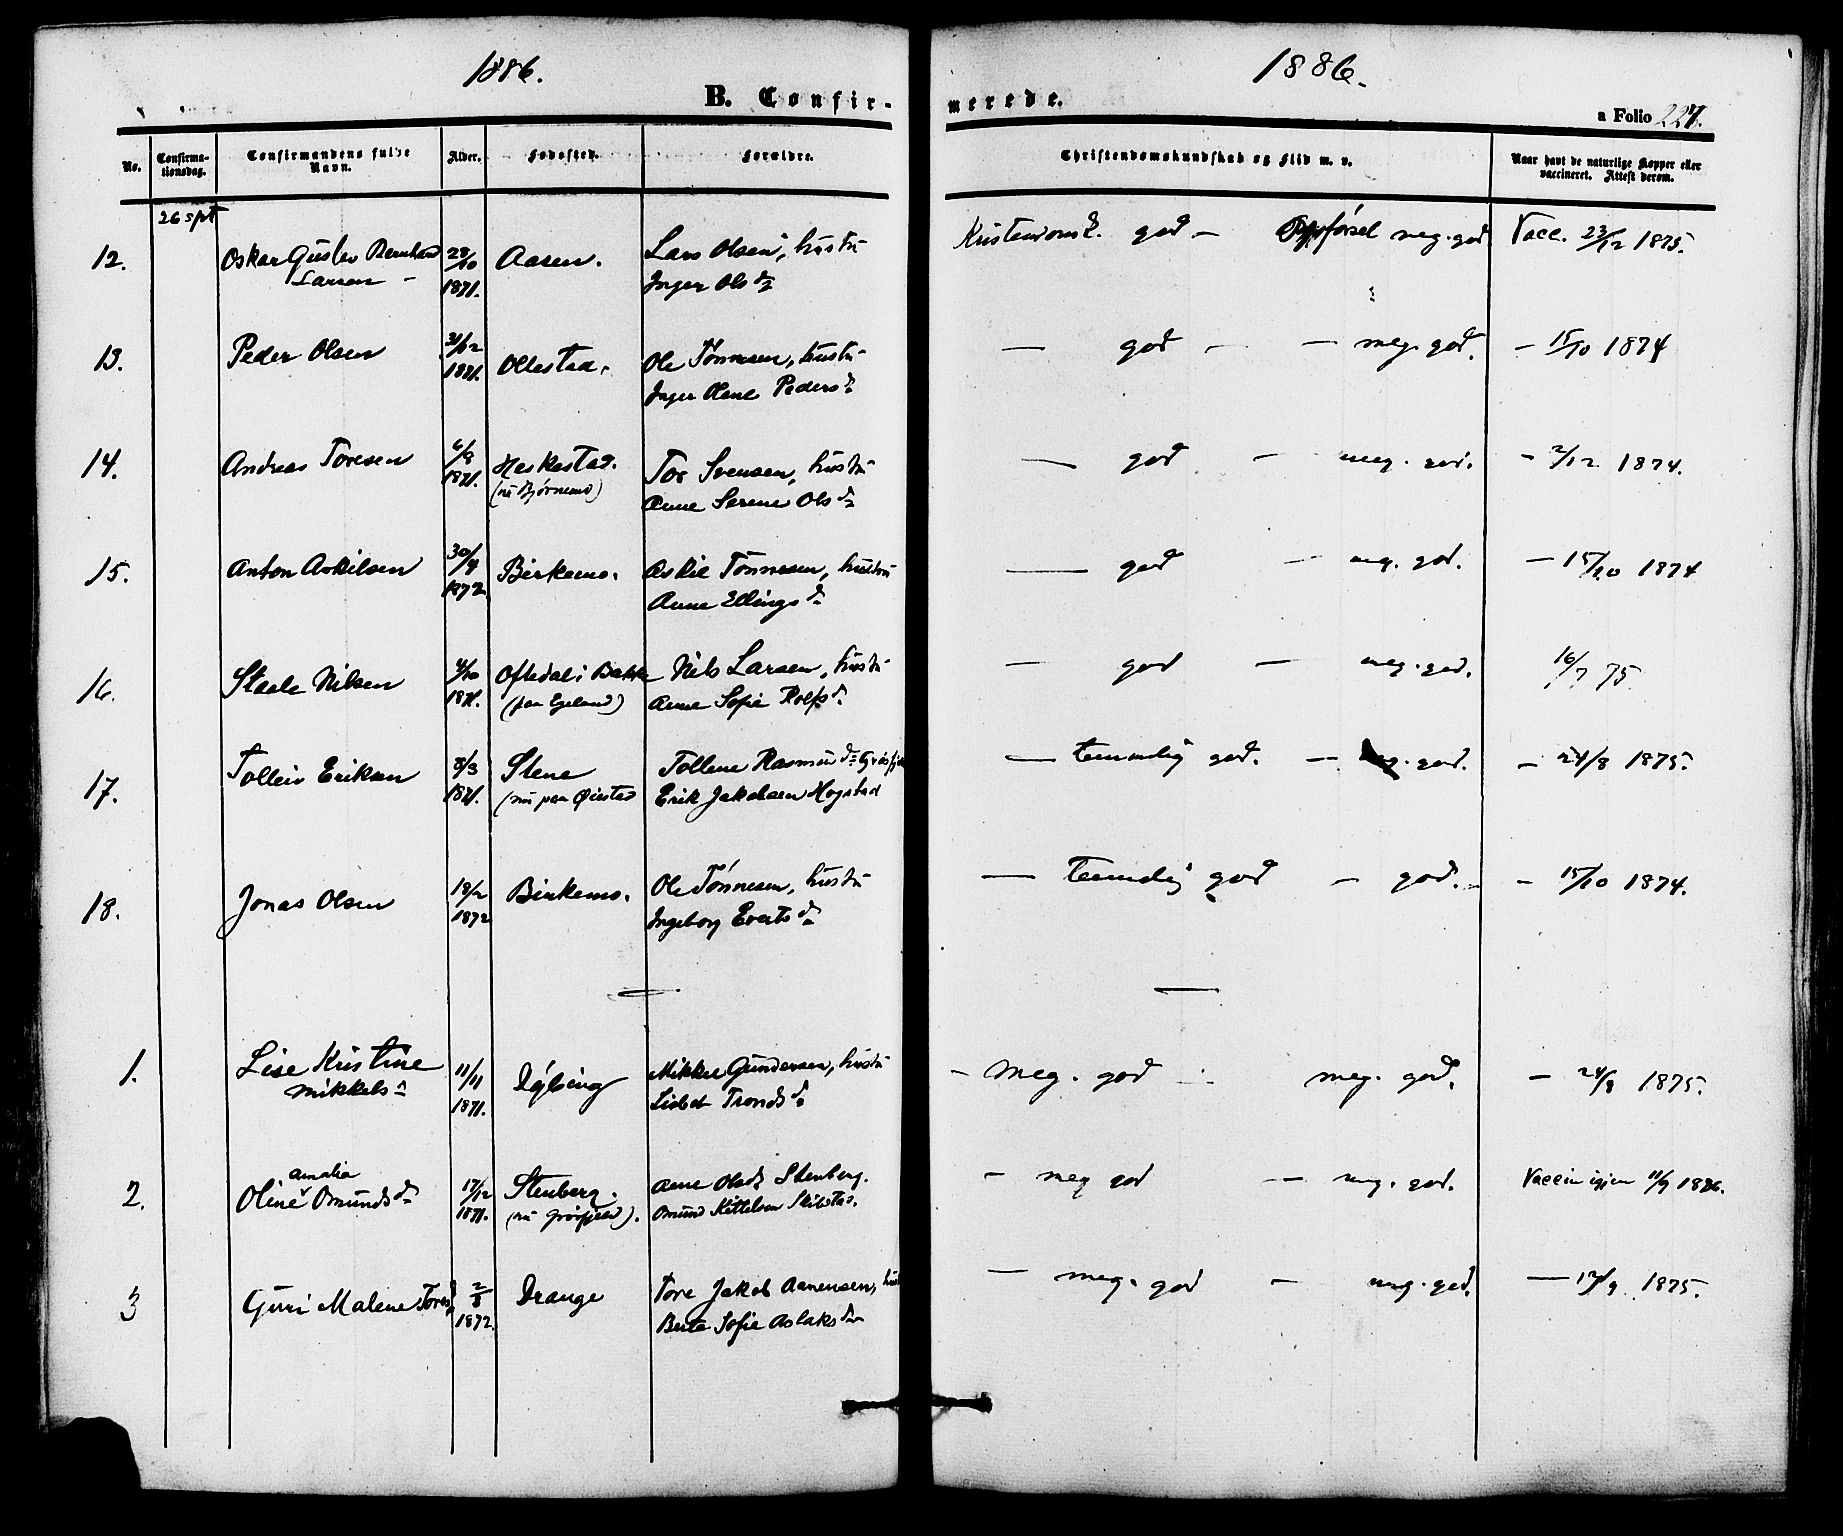 1886.
1886.
B. Confir-
merede.
a Folio 227.
No.
Confirma-
tionsdag.
Confirmandens fulde
Navn.
Alder.
Fødested.
Forældre.
Christendomskundskab og Flid m. v.
Naar havt de naturlige Kopper eller
vaccineret. Attest derom.
26 spt
12. Oskar Gustav Bernhard 28/10 Aasen. Lars Olsen, hustru Kristendomsk. god - Opførsel meg. god Vacc. 23/12 1875.
Larsen - 1871. Inger Olsd.
13. Peder Olsen 31/12 Ollestad. Ole Tønnesen, hustru — god - — meg. god. - 15/10 1874
1871. Inger Olene Pedersd.
14. Andreas Toresen 6/9 Heskestad. Tor Svensen, hustru — god - meg. god. - 2/12 1874.
1871. (nu Bjørnemo) Anne Serene Olsd.
15. Anton Askilsen 30/4 Birkemo. Askil Tønnesen, hustru — god - meg. god. - 15/10 1874
1872 Anne Ellingsd.
16. Staale Nilsen 4/10 Oftedal i Bakke Nils Larsen, hustru — god - meg. god. 16/7 75.
1871. (paa Egeland) Anne Sofie Rolfsd.
17. Tolleiv Eriksen 8/3 Stene Tollene Rasmusd. — temmelig god. - god. - 24/8 1875.
1871. (nu paa Øiestad Erik Jakobsen Hogstad
18. Jonas Olsen 18/2 Birkemo. Ole Tønnesen, hustru — temmelig god - god. - 15/10 1874.
1872 Ingeborg Evertsd.
1. Lise Kristine 11/11 Dybing Mikkel Gundersen, hustru - meg. god meg. god. - 24/8 1875.
Mikkelsd. 1871. Lisbet Trondsd.
amalia
2. Oline Omundsd. 17/12 Stenberg. Anne Olsd. Stenberg. - meg god - meg. god. Vaccin igjen 11/9 1886.
1871. (nu Grøsfjeld). Omund Kittelsen Skibstad.
3 Guri Malene Toresd. 2/8 Drange Tore Jakob Aanensen, hust — meg. god - meg. god. — 17/9 1875.
1872. Berte Sofie Aslaksd.